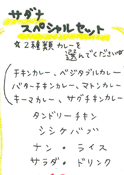 サダナ
スペシャルセット
☆2種類カレーを
選んでください
(チキンカレー、ベジタブルカレー
バターチキンカレー、マトンカレー
キーマカレー、サグチキンカレー)
タンドリーチキン
シシケバブ
ナン・ライス
サラダ・ドリンク